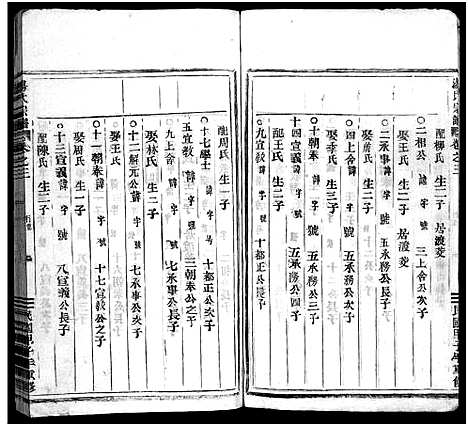 配柳氏 生二子 居渡菱
○二相公 諱 字 號 三上舍公次子
配 氏 生二子 居渡菱
○二承事 諱 字 號 五承務公長子
娶 氏 生三子
○十朝奉 諱 字 號 五承務公次子
娶季氏 生三子
○六宣教 諱 字 號 五承務公四子
配王氏 生二子
○九宣義 諱 字 號 十都正公長子
配周氏 生一子
○十七學士 諱 字 號 十都正公次子
五宣教 諱 字 號 三朝奉公之子
○九上舍 諱 字 號 七承事公長子
娶林氏 生二子
○十二解元公 諱 字 號 七承事公次子
娶王氏 生 子
○十一朝奉 諱 字 號 七宣教公之子
娶周氏 生二子
○十三宣義 諱 字 號 八宣義公長子
配陳氏 生三子
湯氏宗譜 卷之三
民國甲子年重修